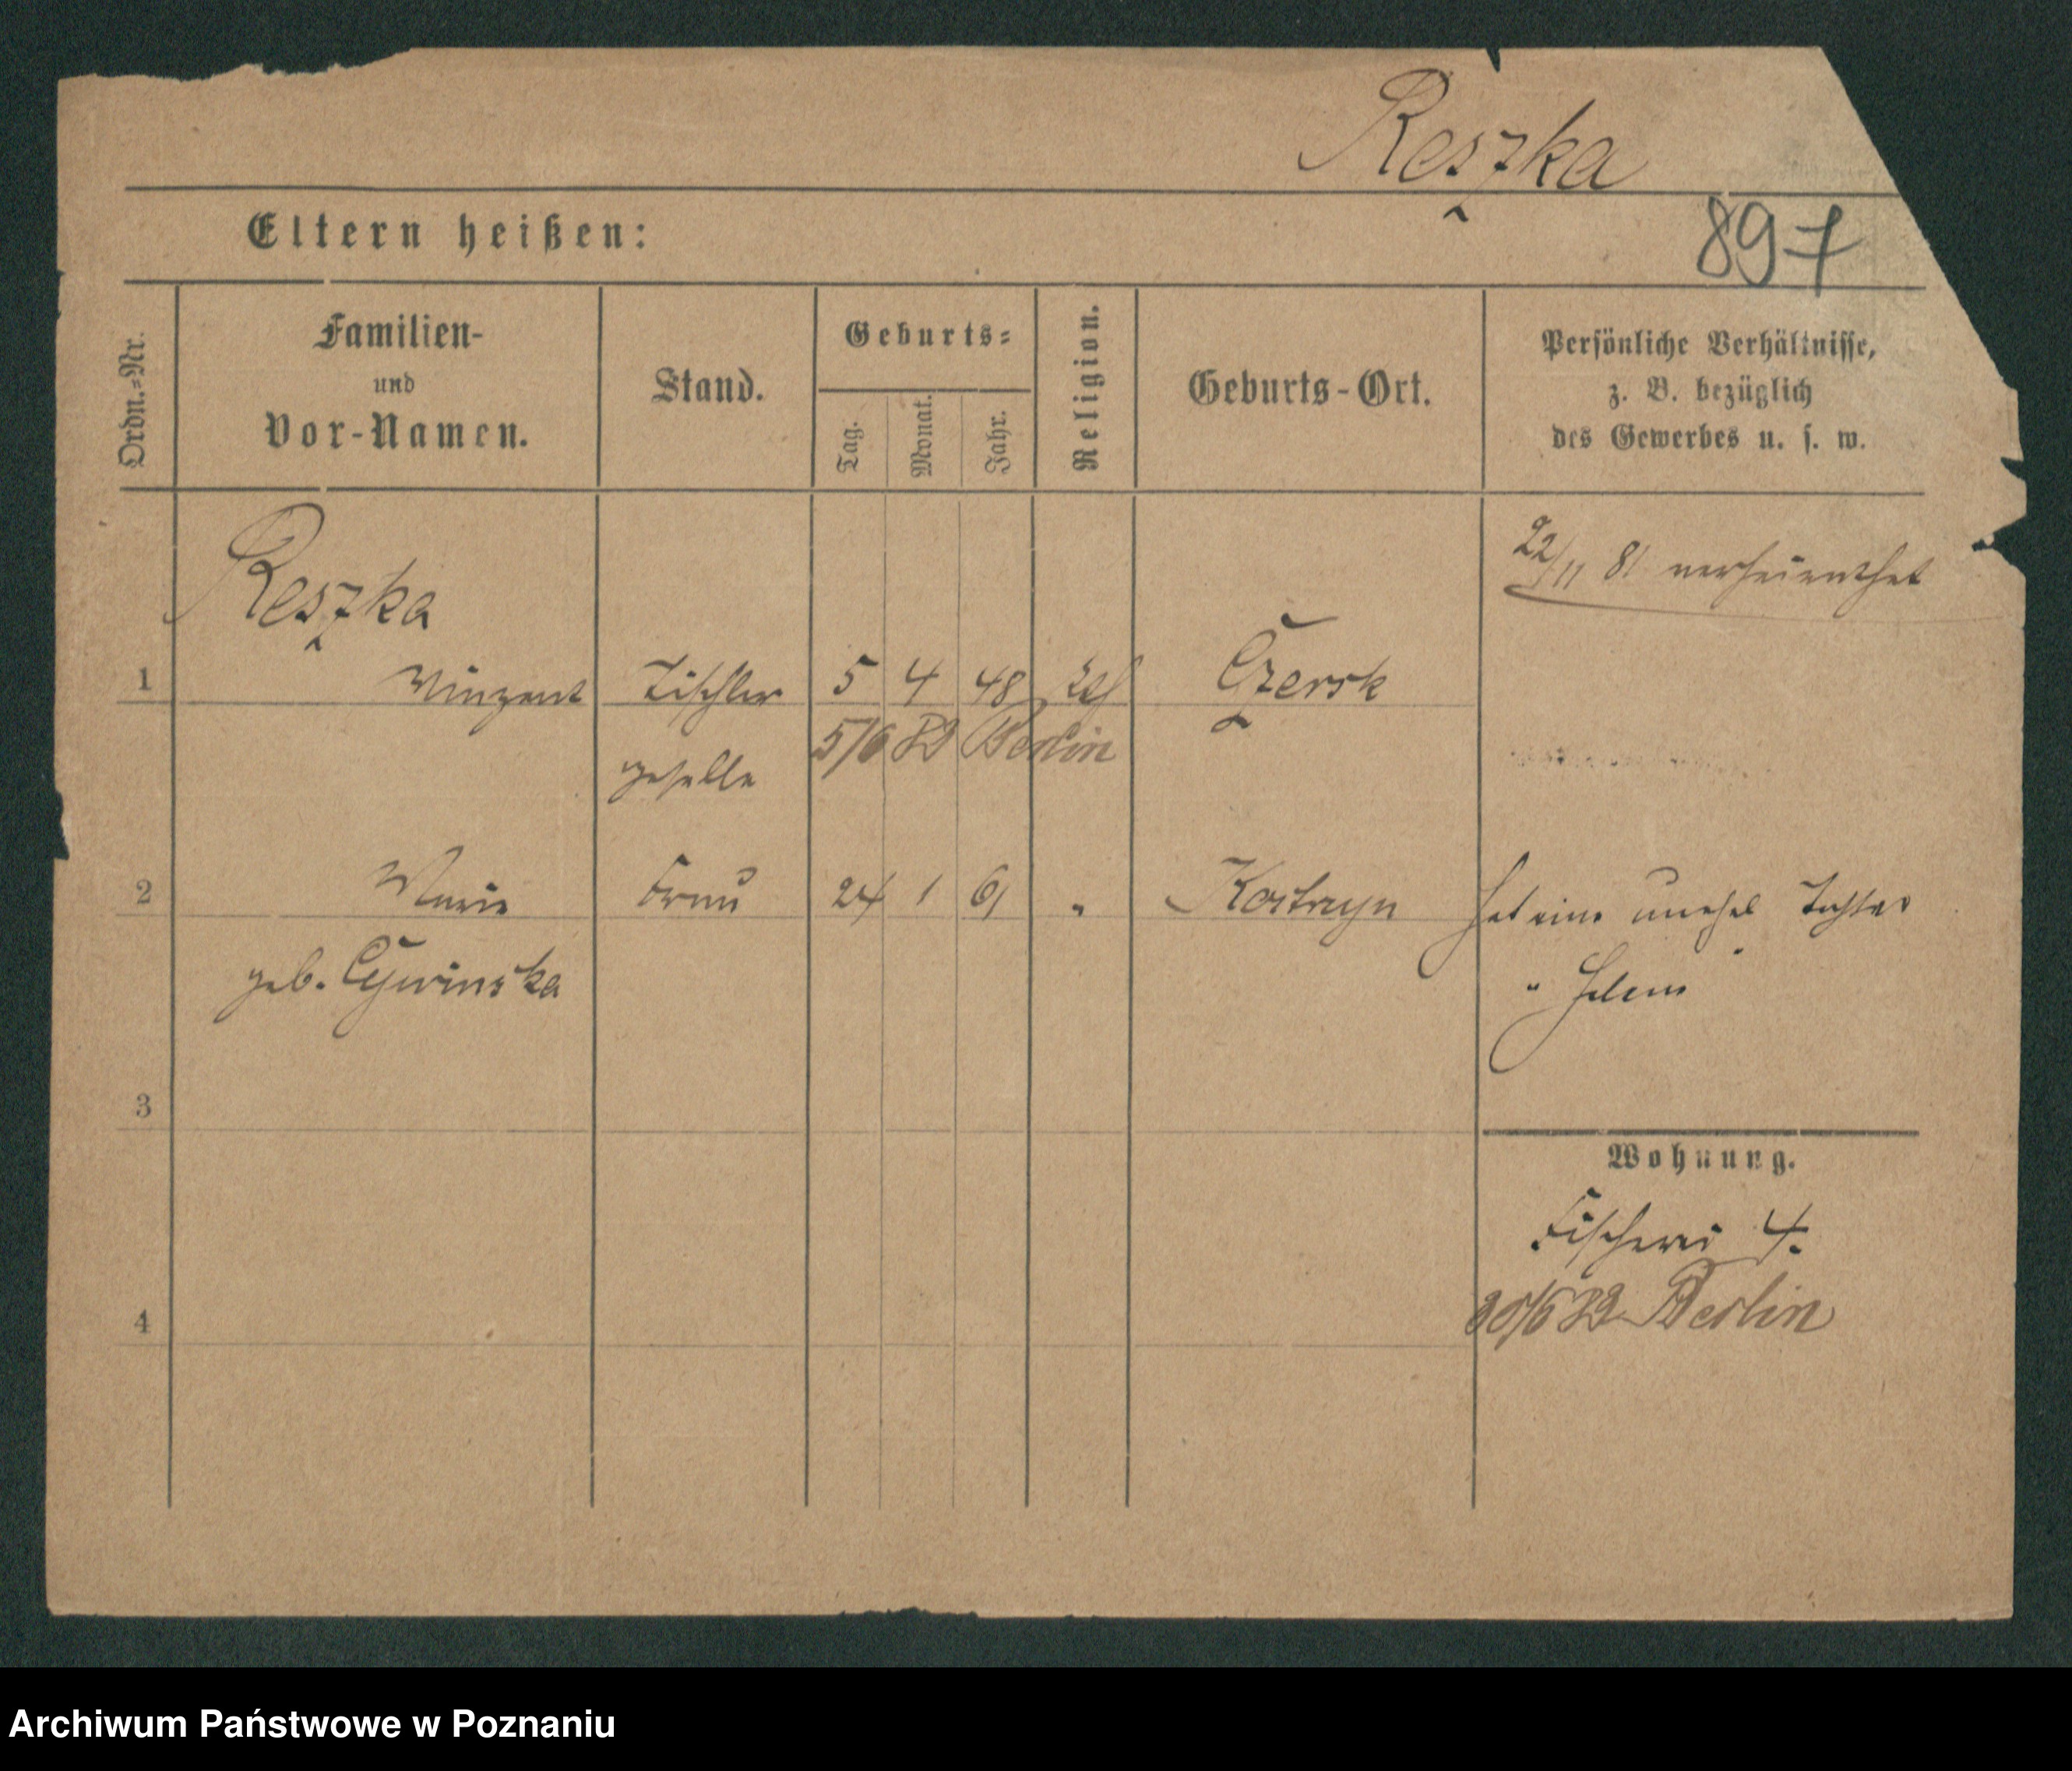 Reszka
Eltern heißen:
897
Ordn.-Nr.
Familien-
und
Vor-Namen.
Stand.
Geburts-
Tag.
Monat.
Jahr.
Religion.
Geburts-Ort.
Persönliche Verhältnisse,
z. B. bezüglich
des Gewerbes u. s. w.
22/11 81 verheirathet
Reszka
1 Vinzent Tischler 5 4 48 kath Czersk
geselle 5/6 82 Berlin
2 Marie Frau 24 1 61 " Kostrzyn hat eine unehel Tochter
geb. Cywinska " Helene "
3
Wohnung.
Fischerei 4.
4 /6 82 Berlin
Archiwum Państwowe w Poznaniu